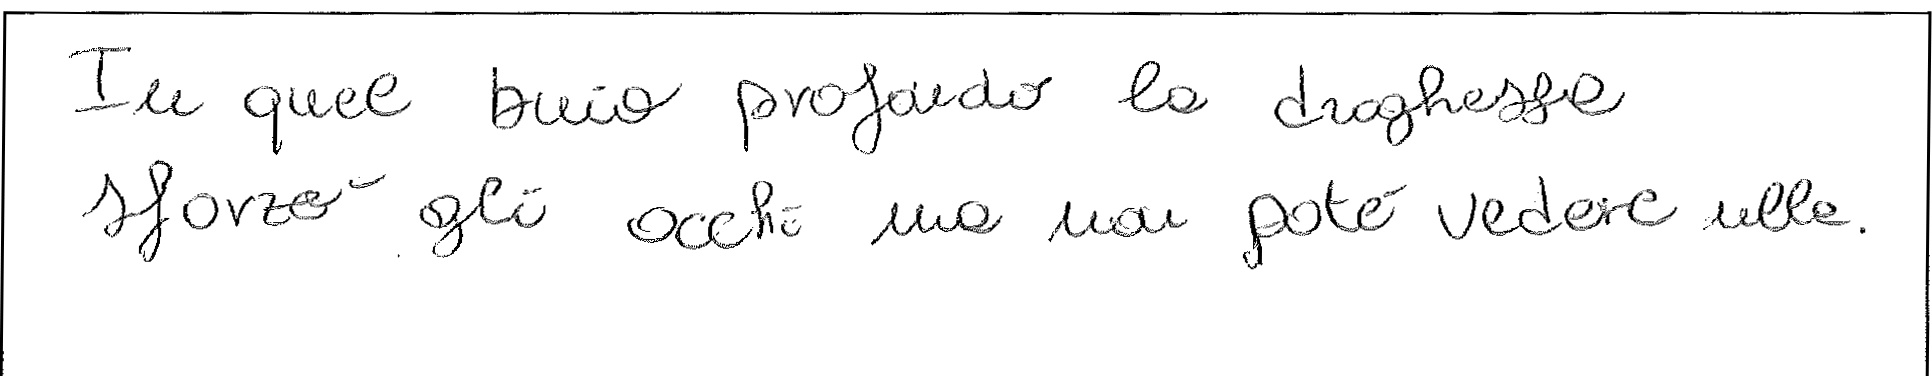 In quel buio profondo la draghessa
sforzò gli occhi ma non poté vedere ulla.